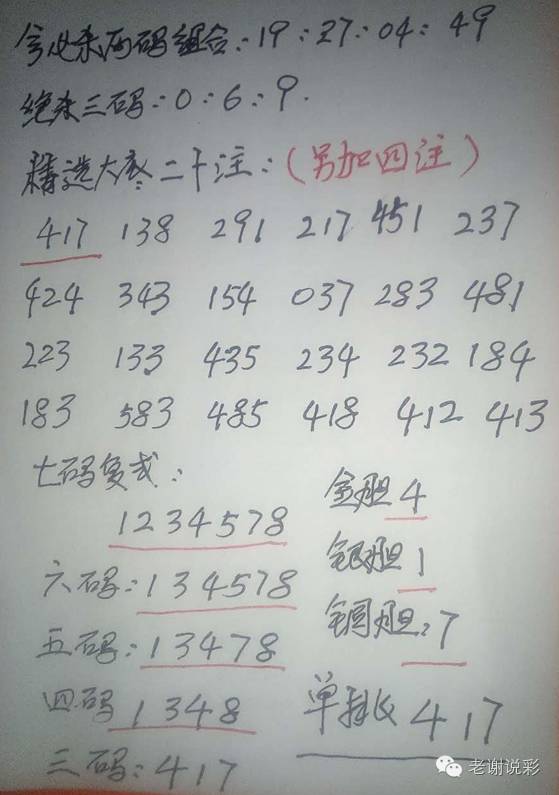 今必杀两码组合:19:27:04:49
绝杀三码:0:6:9.
精选大底二十注:(另加四注)
417 138 291 217 451 237
424 343 154 037 283 481
223 133 435 234 232 184
183 583 485 418 412 413
七码复式:
1234578
六码:134578
五码:13478
四码 1348
三码:417
金胆4
银胆1
铜胆:7
单挑 417
老谢说彩